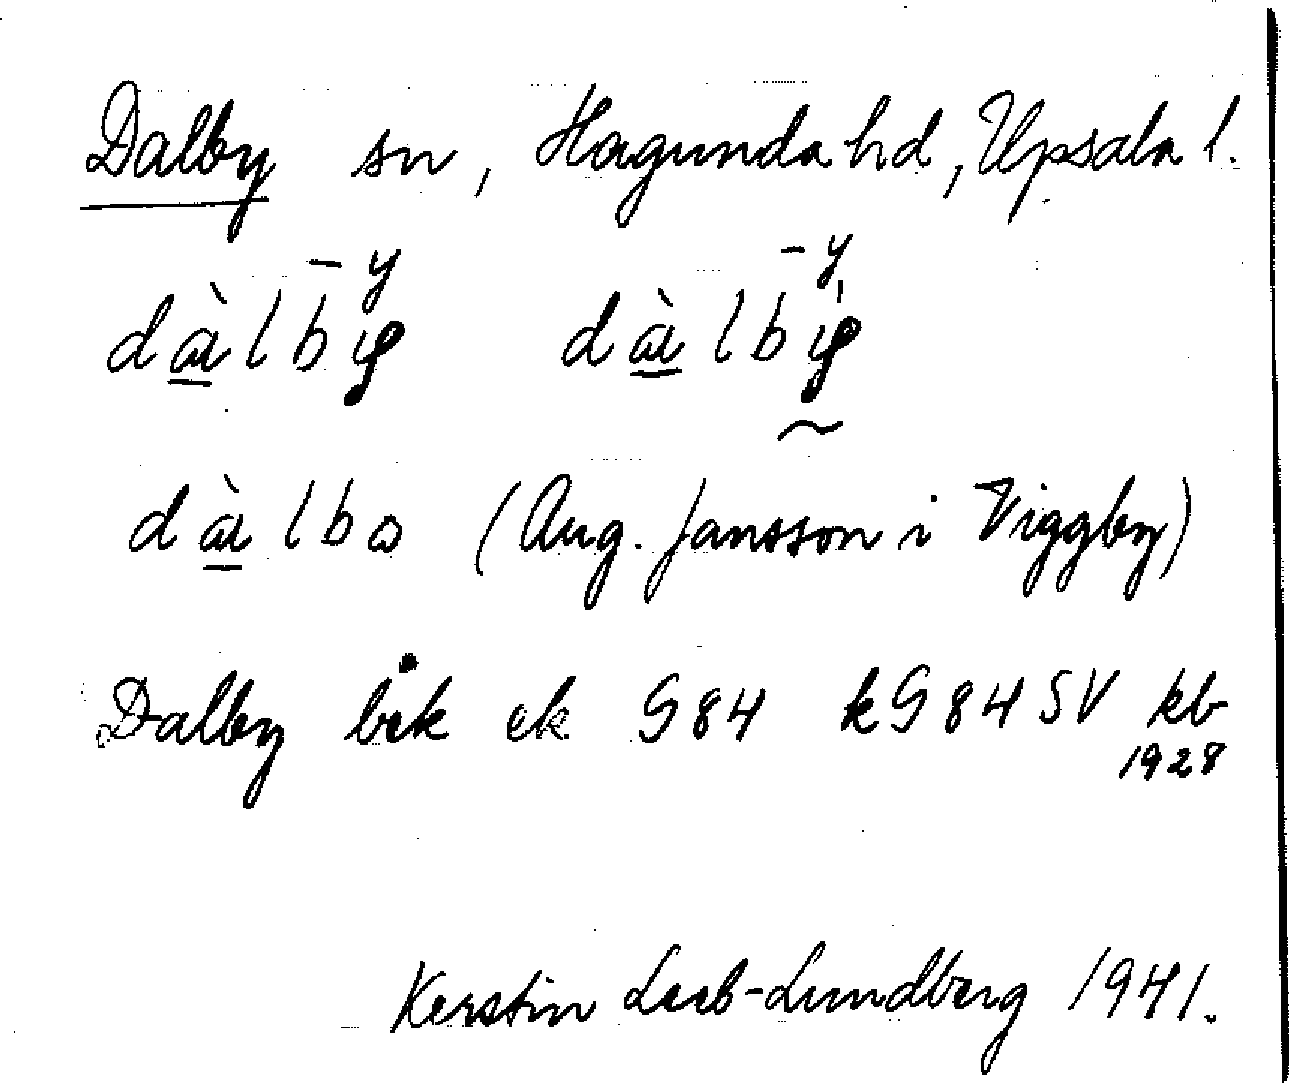 Dalby sn, Hagunda hd, Upsala l.
-y -y
dàlby dàlby
dàlbo (Aug. Jansson i Viggby)
Dalby båk ek G84 kG84SV kb
1928
Kerstin Loeb-Lundberg 1941.